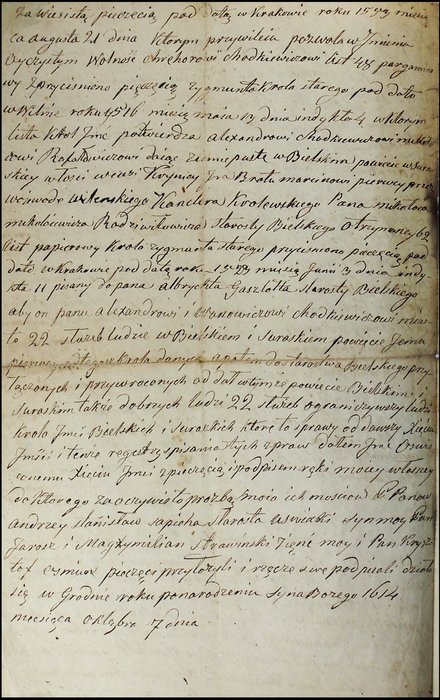 zawiesistą pieczęcią pod datą w Krakowie roku 1533 miesię
ca augusta 21 dnia Ktorym przywileiu pozwala w Imieniu
Oyczystym Wolność Chrehorowi Chodkiewiczowi list 48 pargamino
wy z przyciśnioną pieczęcią Zygmunta Krola starego pod datą
w Wilnie roku 1516 miesiąca maia 13 dnia indykta 4 w ktorym
lista Krol Jmc potwierdza alexandrowi Chodkiewiczowi
ziemie puste w Bielskim powiecie w Sura
skiey włości
woiewodę wilenskiego Kanclera Krolewskiego Pana mikołaia
mikołaiewicza Radziwiłowicza Starosty Bielskiego otrzymaney 62
list papierowy Krola Zygmunta starego przyciśniona pieczęcią pod
datą w Krakowie pod datą roku 1543 miesiąca Junii 3 dnia indy
kta 11 pisany do pana albrychta Gasztołta Starosty Bielskiego
aby on panu alexandrowi Iwanowiczowi Chodkiewiczowi mias
to 22 służeb ludzie w Bielskiem i Suraskiem powiecie Jemu
pierwey od tegoż Krola danych a potem do starostwa Bielskiego przy
łączonych i przywroconych oddał w tymże powiecie Bielskim i
Suraskim także dobrych ludzi 22 służeb ograniczywszy ludzi
Krola Jmci Bielskich i Suraskich ktore to sprawy oddawszy Xięciu
Jmści i tenże regestr spisania tych spraw dałem Jmc Oswie
conemu Xięciu Jmci z pieczęcią i s podpisem ręki moiey własney
do ktorego za oczywisto prozbą moią ich mosciow PP Panow
andrzey stanisław sapieha starosta uswiatski syn moy Pan
Jarosz i Maxymilian Strawinski Zięnc moy i Pan Krysz
tof Esmunt pieczęci przyłożyli i ręcze swe podpisali działo
się w Grodnie roku po narodzeniu Syna Bożego 1614
miesiąca Oktobra 7 dnia